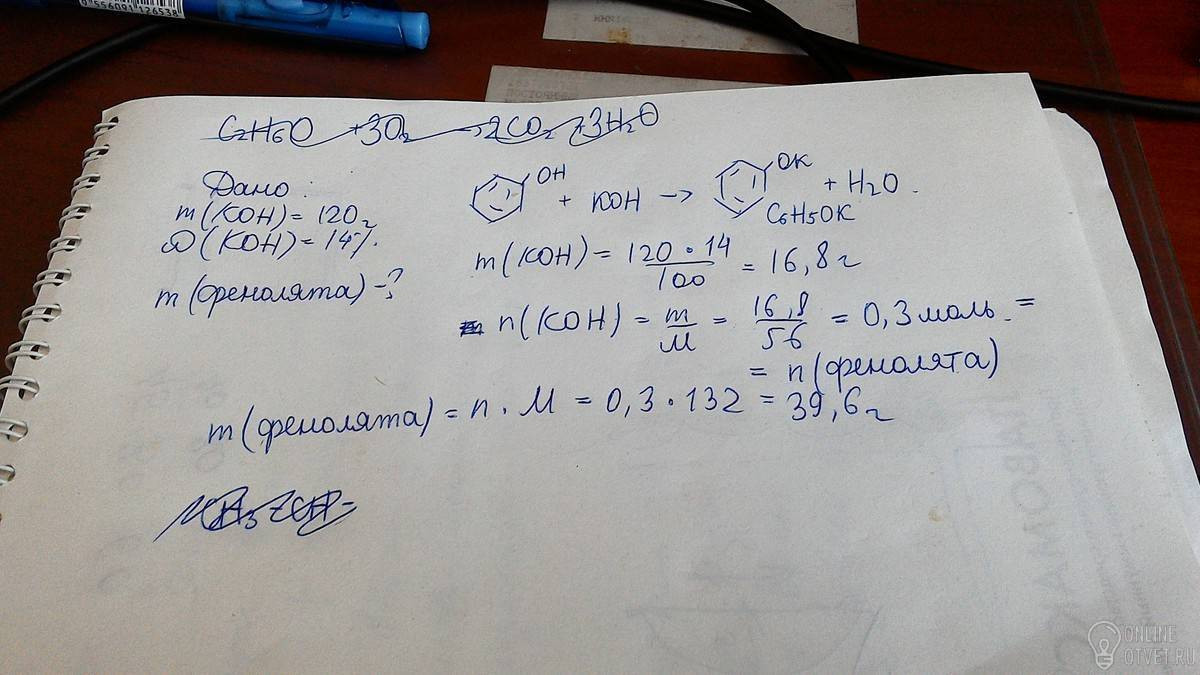 0 556091 126538
C2H6O + 3O2 → 2CO2 + 3H2O
Дано:
m(KOH) = 120г
ω(KOH) = 14%.
m(фенолята) - ?
OH + KOH → OK + H2O.
C6H5OK
m(KOH) = 120 · 14 / 100 = 16,8г
n(KOH) = m / M = 16,8 / 56 = 0,3 моль =
= n(фенолята)
m(фенолята) = n · M = 0,3 · 132 = 39,6г
ONLINE
OTVET.RU